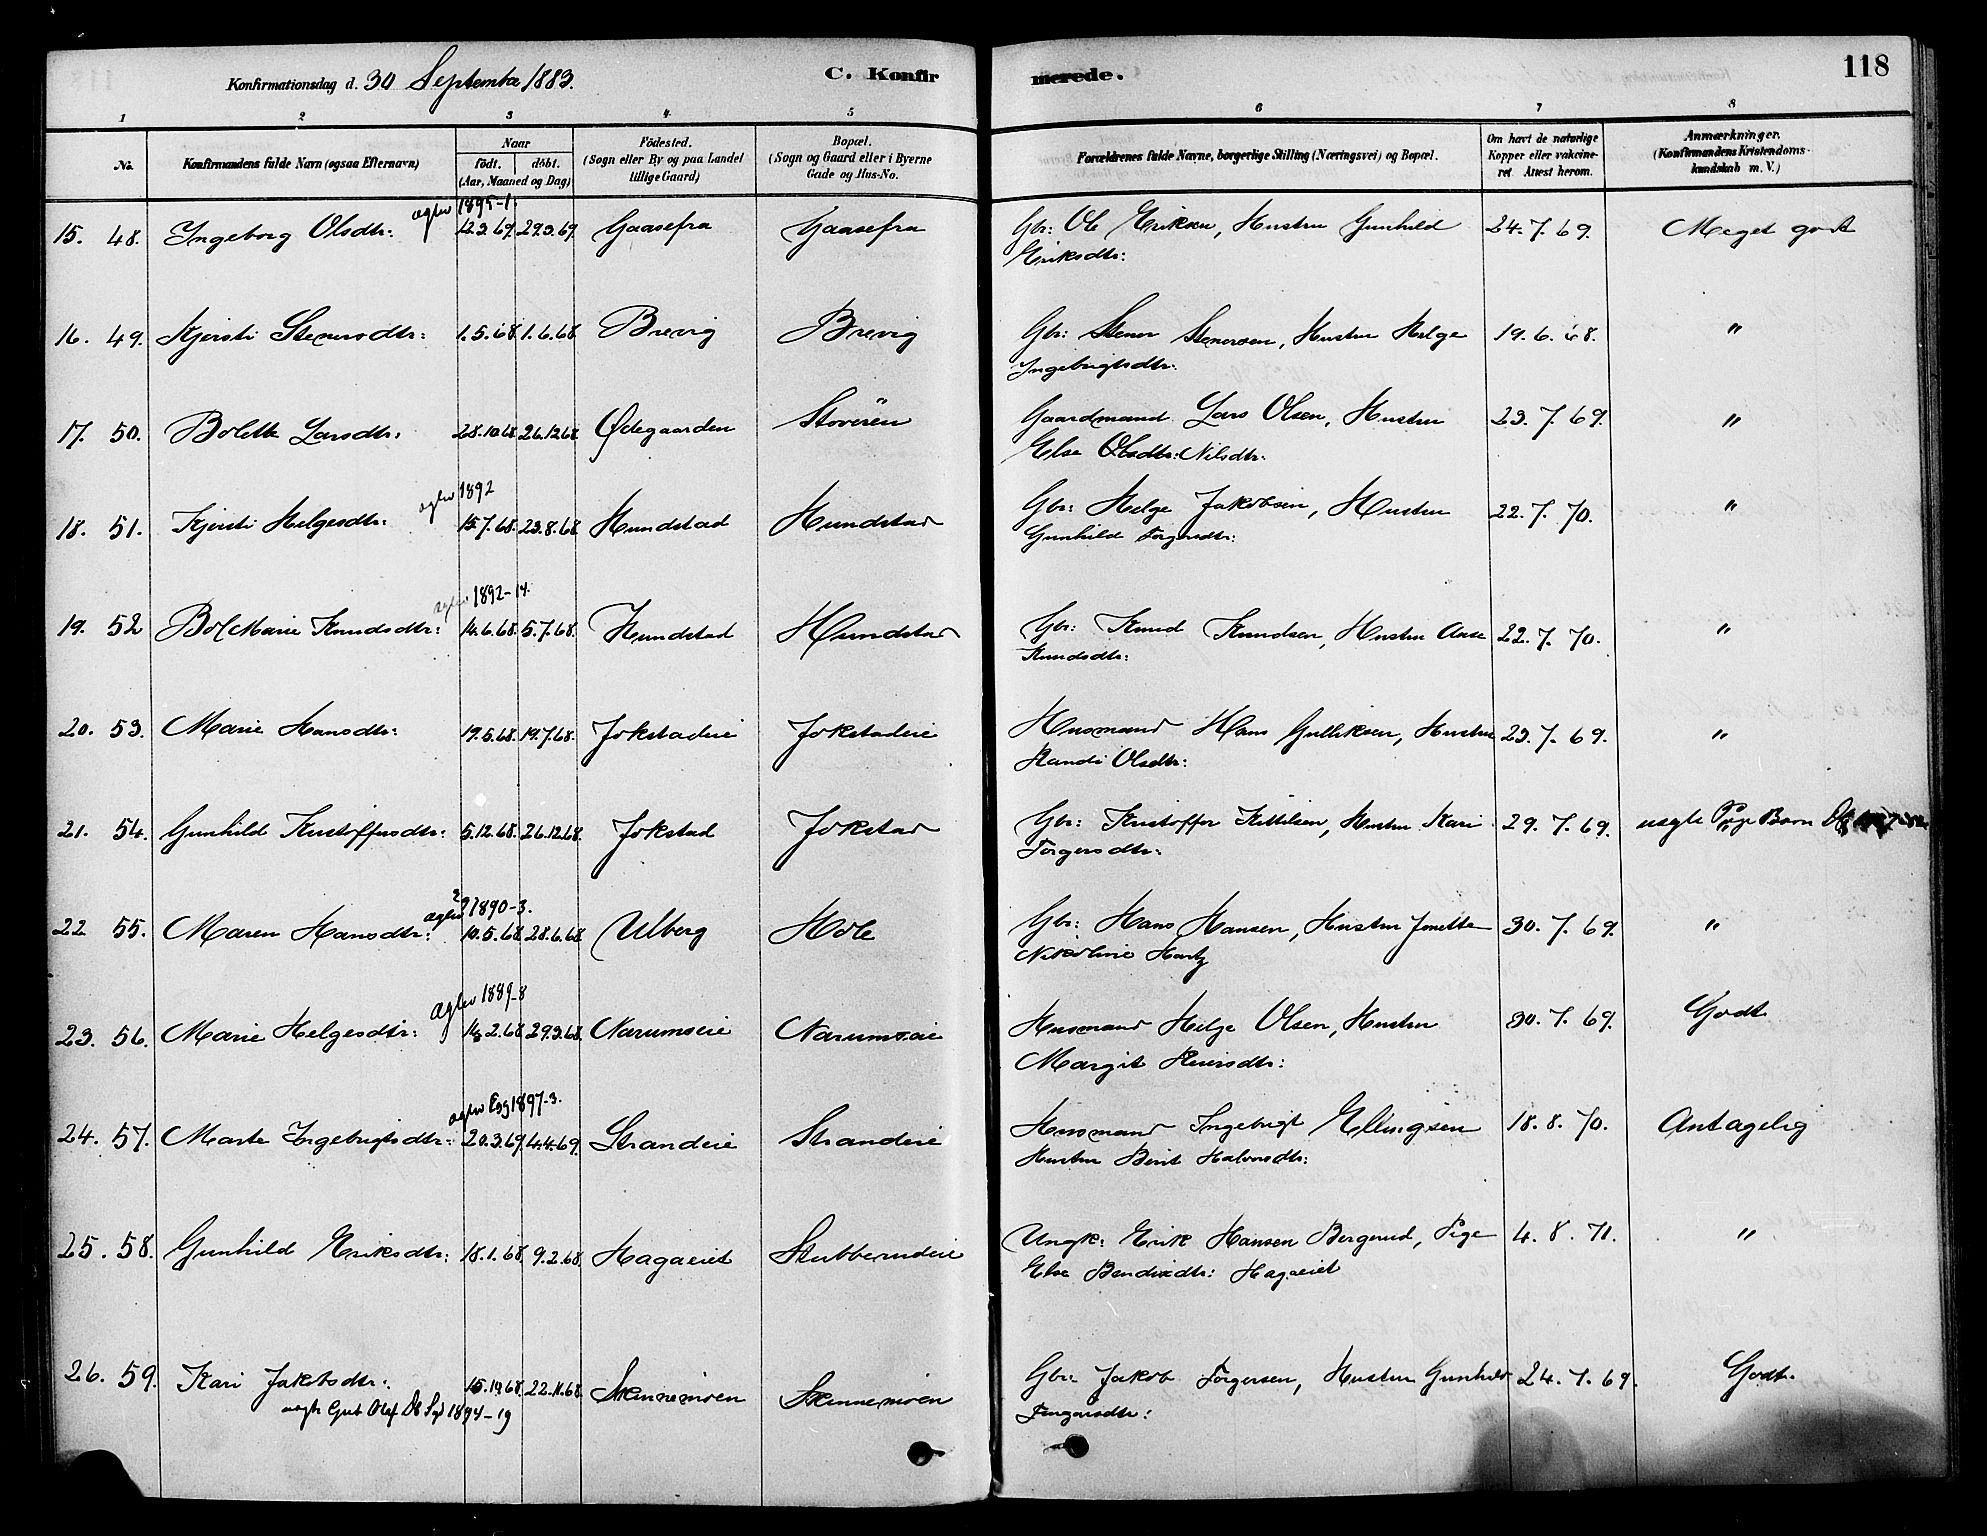 Konfirmationsdag d. 30 September 1883.
C. Konfir
merede.
118
1 2 3 4 5 6 7 8
No.
Konfirmandens fulde Navn (ogsaa Efternavn)
Naar
födt. döbt.
(Aar, Maaned og Dag)
Födested.
(Sogn eller By og paa Landet
tillige Gaard)
Bopæl.
(Sogn og Gaard eller i Byerne
Gade og Hus-No.
Forældrenes fulde Navne, borgerlige Stilling (Næringsvei) og Bopæl.
Om havt de naturlige
Kopper eller vakcine-
ret. Attest herom.
Anmærkninger.
(Konfirmandens Kristendoms-
kundskab m. V.)
1895-1.
15. 48. Ingeborg Olsdtr: 12.3.69. 29.3.69. Gaasefra Gaasefra Gbr: Ole Eriksen, Hustru Gunhild 24.7.69. Meget godt
Eriksdtr:
16. 49. Kjersti Stenersdtr: 1.5.68. 1.6.68. Brevig Brevig Gbr: Stener Stenersen, Hustru Helge 19.6.68. "
Ingebrigtsdtr:
17. 50. Bolette Larsdtr: 28.10.68. 26.12.68. Ødegaarden Storøen Gaardmand Lars Olsen, Hustru 23.7.69. "
Else Olsdtr: Nilsdtr:
1892
18. 51. Kjersti Helgesdtr: 15.7.68. 23.8.68. Hundstad Hundstad Gbr: Helge Jakobsen, Hustru 22.7.70. "
Gunhild
1892-14.
19. 52 Bol Marie Knudsdtr: 14.6.68. 5.7.68. Hundstad Hundstad Gbr: Knud Knudsen, Hustru Aase 22.7.70. "
Knudsdtr:
20. 53. Marie Hansdtr: 19.5.68. 19.7.68. Jokstadeie Jokstadeie Husmand Hans Gulliksen, Hustru 23.7.69. "
Randi Olsdtr:
21. 54. Gunhild Kristoffersdtr: 5.12.68. 26.12.68. Jokstad Jokstad Gbr: Kristoffer Kittilsen, Hustru Kari 29.7.69. uegte Pige Barn
Torgersdtr:
1890-3.
22 55. Maren Hansdtr: 10.5.68. 28.6.68. Ulberg Hole Gbr: Hans Hansen, Hustru Jonette 30.7.69. "
Nikoline Hartz
1889-8
23. 56. Marie Helgesdtr: 14.2.68. 29.3.68. Narumseie Narumseie Husmand Helge Olsen, Hustru 30.7.69. Godt.
Margit Reiersdtr:
1897-3.
24. 57. Marte Ingebrigtsdtr: 20.3.69. 4.4.69. Strandeie Strandeie Husmand Ingebrigt Ellingsen 18.8.70. Antagelig
Hustru Berit Halvorsdtr:
25. 58. Gunhild Eriksdtr: 18.1.68. 9.2.68. Hagaeiet Stubberudeie Ungk: Erik Hansen Bergerud, Pige 4.8.71. "
Else Bendixdtr: Hagaeiet
26. 59. Kari Jakobsdtr: 15.10.68. 22.11.68. Skinnemoen Skinnemoen Gbr: Jakob Torgersen, Hustru Gunhild 24.7.69. Godt.
Olaf 1894-19